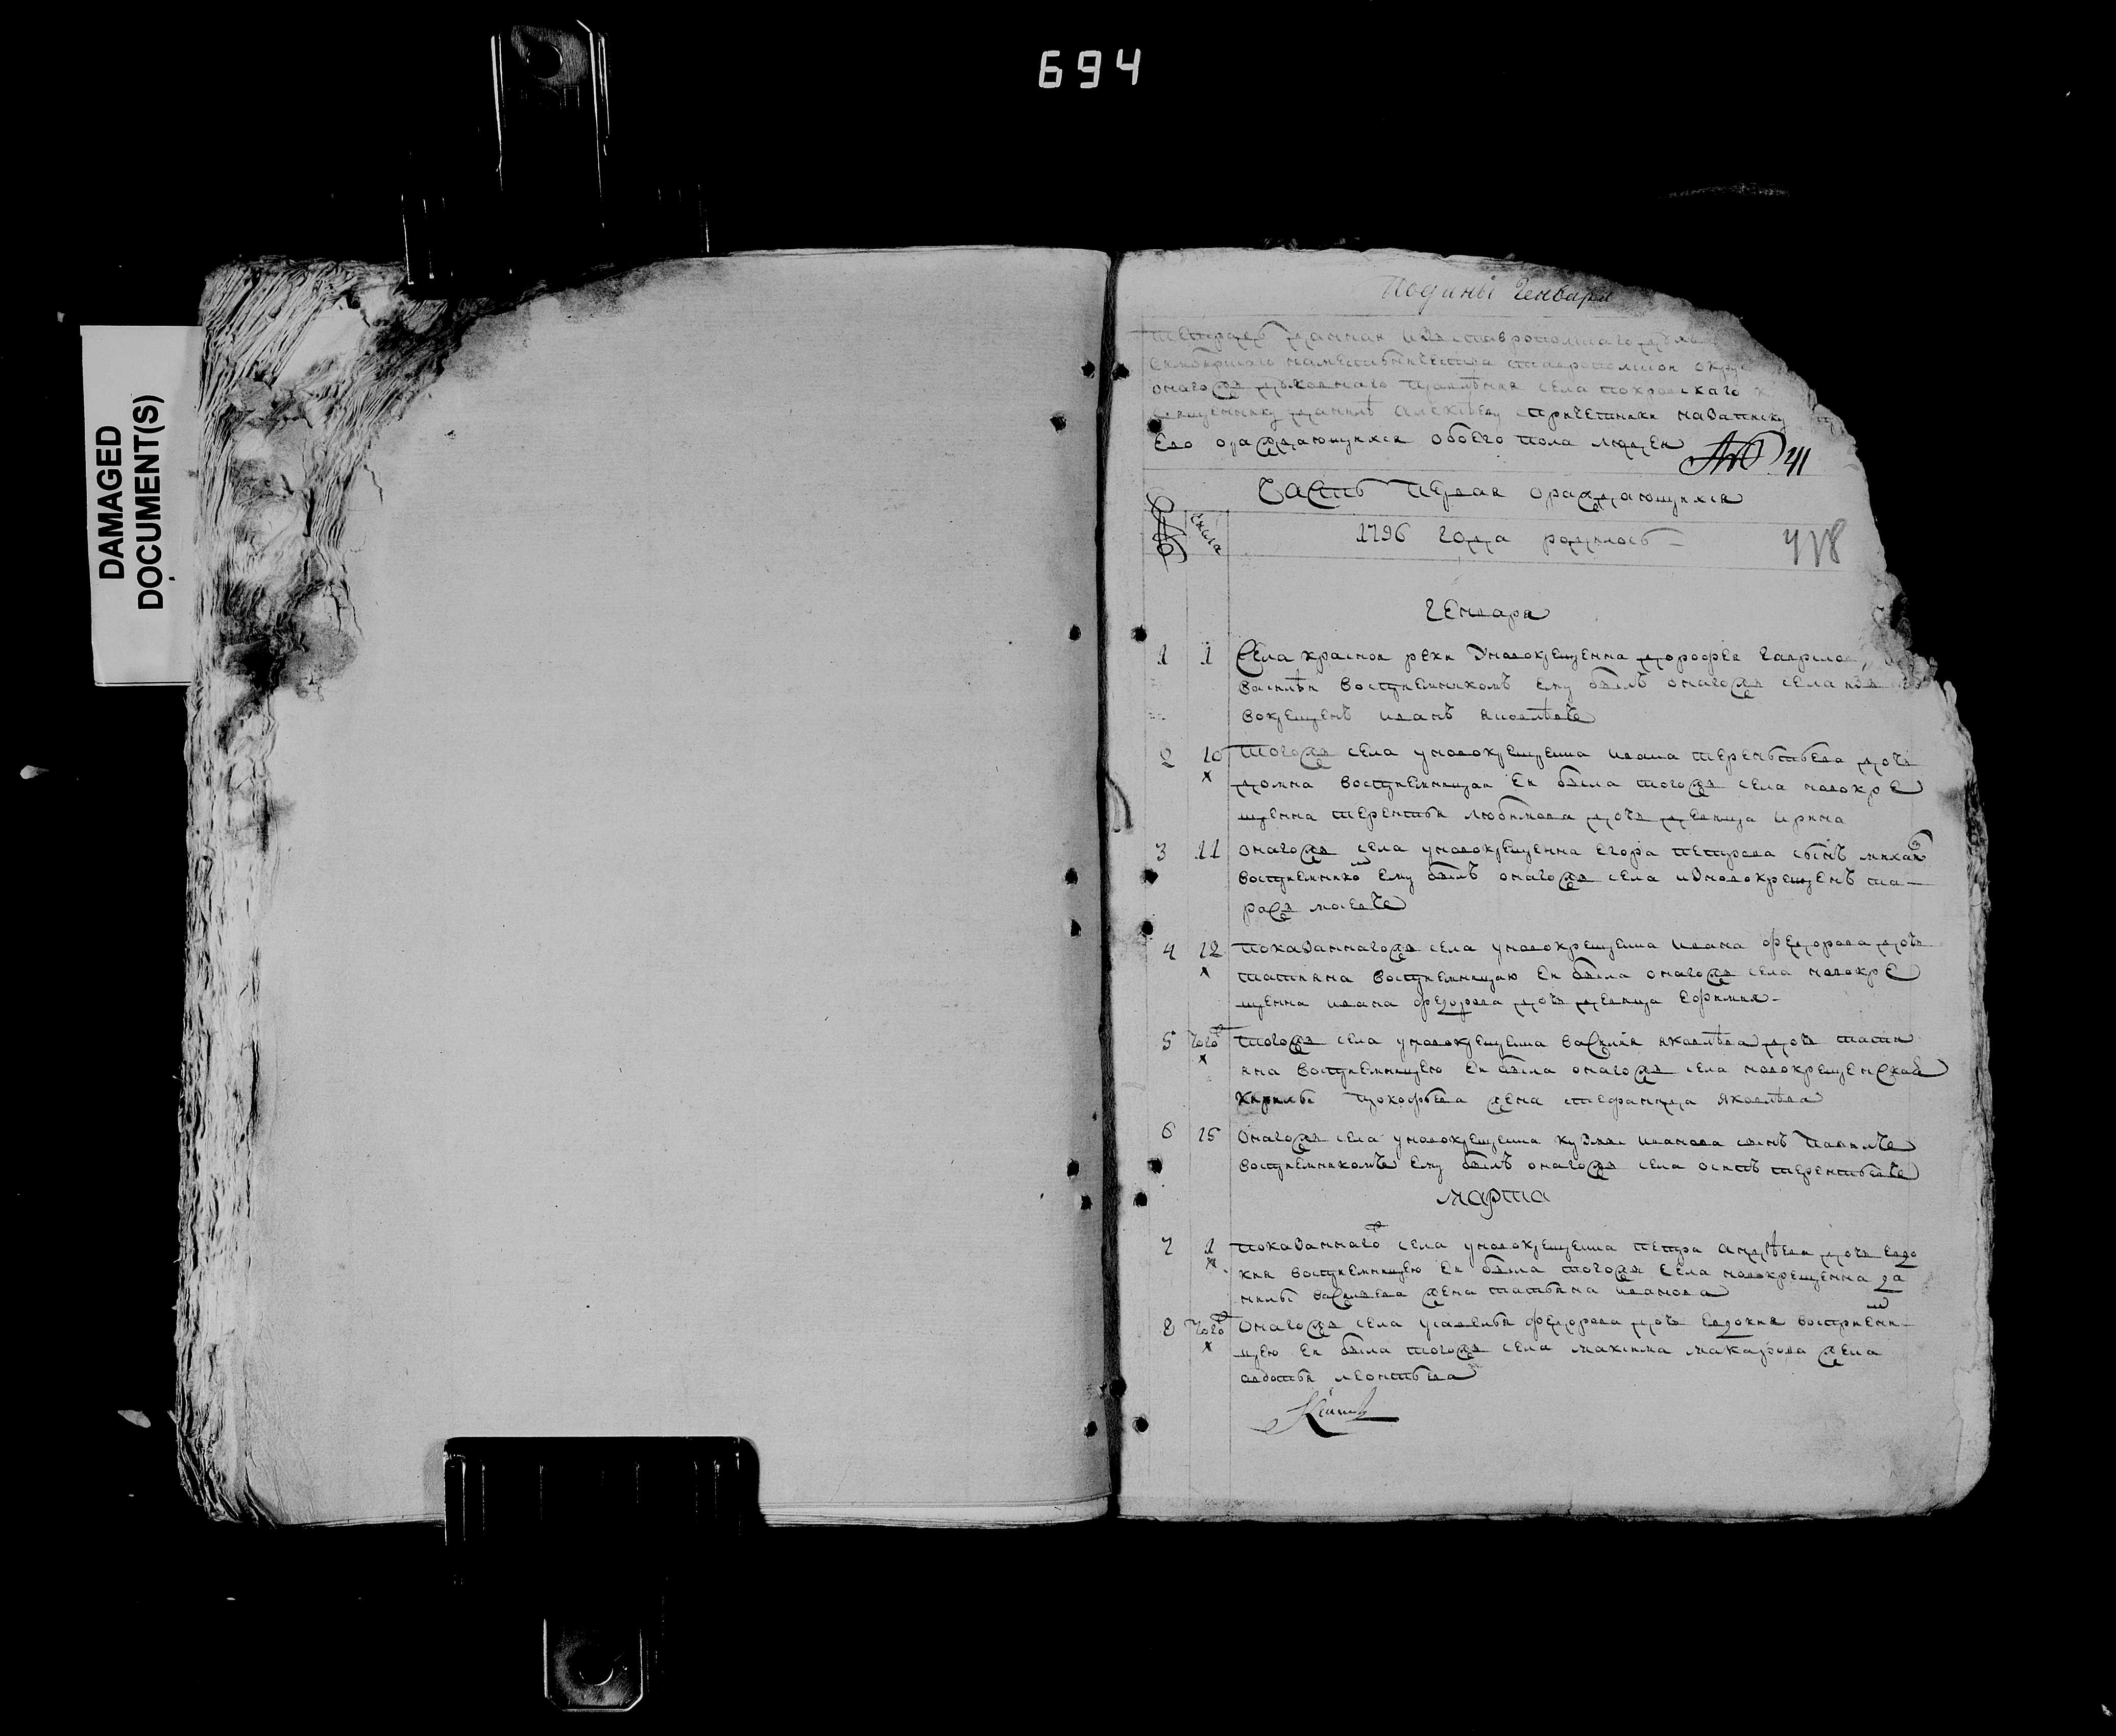 694
DAMAGED
DOCUMENT(S)
генваря
тетрадь данная изставропольскаго
симбирскаго наместьничества ставрополской
оногожъ духовнаго правления села покровскаго
священнику данилѣ алексѣеву спричетники назаписку
его ораждающихся обоего пола людей
41
Часть первая ораждающихся
числа
1796 года родилось
генваря
1 1 Села красной реки уновокрещенна дорофея гаврилова
василѣй восприемникомъ ему былъ оногожъ села изъ
вокрещенъ иванъ яковлѣвъ
2 10 тогожъ села уновокрещенна ивана терентьева дочь
домна восприемницай ей была тогожъ села новокре
щенна терентья любимова дочь девица ирина
3 11 оногожъ села уновокрещенна егора петрова сынъ михайл
восприемником ему былъ оногожъ села изновокрещенъ та
расъ
4 12 показаннагожъ села уновокрещенна ивана федорова дочь
татияна восприемницаю ей была оногожъ села новокре
щенна ивана федорова дочь девица ефимия
5 того ж тогожъ села уновокрещенна василия яковлѣва дочь тати
яна восприемницею ей была оногожъ села новокрещенскаго
кирилы прокофьева жена стефанида яковлѣва
6 15 оногожъ села уновокрещенна кузмы иванова сынъ
восприемникомъ ему былъ оногожъ села осипъ терентьевъ
марта
7 1 показаннаго ж села уновокрещенна петра андрѣева дочь евдо
кия восприемницею ей была тогожъ села новокрещенна да
нилы васильева жена татьяна иванова
8 того ж оногожъ села усавелья федорова дочь евдокия восприемни
цею ей была тогожъ села максима макарова жена
авдотья леонтьева